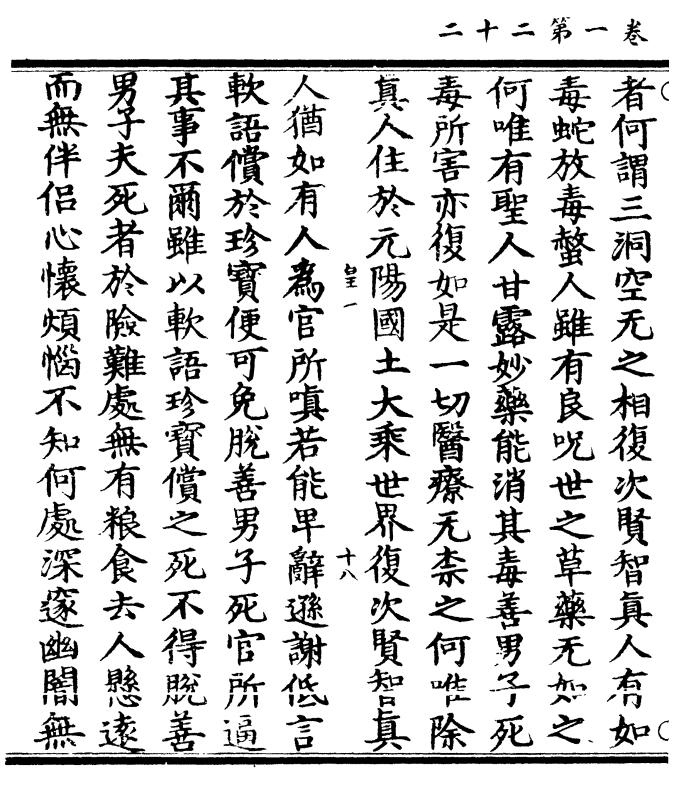 卷一第二十二
者何謂三洞空无之相復次賢智真人有如
毒蛇放毒螫人雖有良呪世之草藥无如之
何唯有聖人甘露妙藥能消其毒善男子死
毒所害亦復如是一切醫療无柰之何唯除
真人住於元陽國土大乘世界復次賢智真
皇一
十八
人猶如有人為官所嗔若能卑辭遜謝低言
軟語償於珍寶便可免脫善男子死官所逼
其事不爾雖以軟語珍寶償之死不得脫善
男子夫死者於險難處無有粮食去人懸遠
而無伴侶心懷煩惱不知何處深邃幽闇無